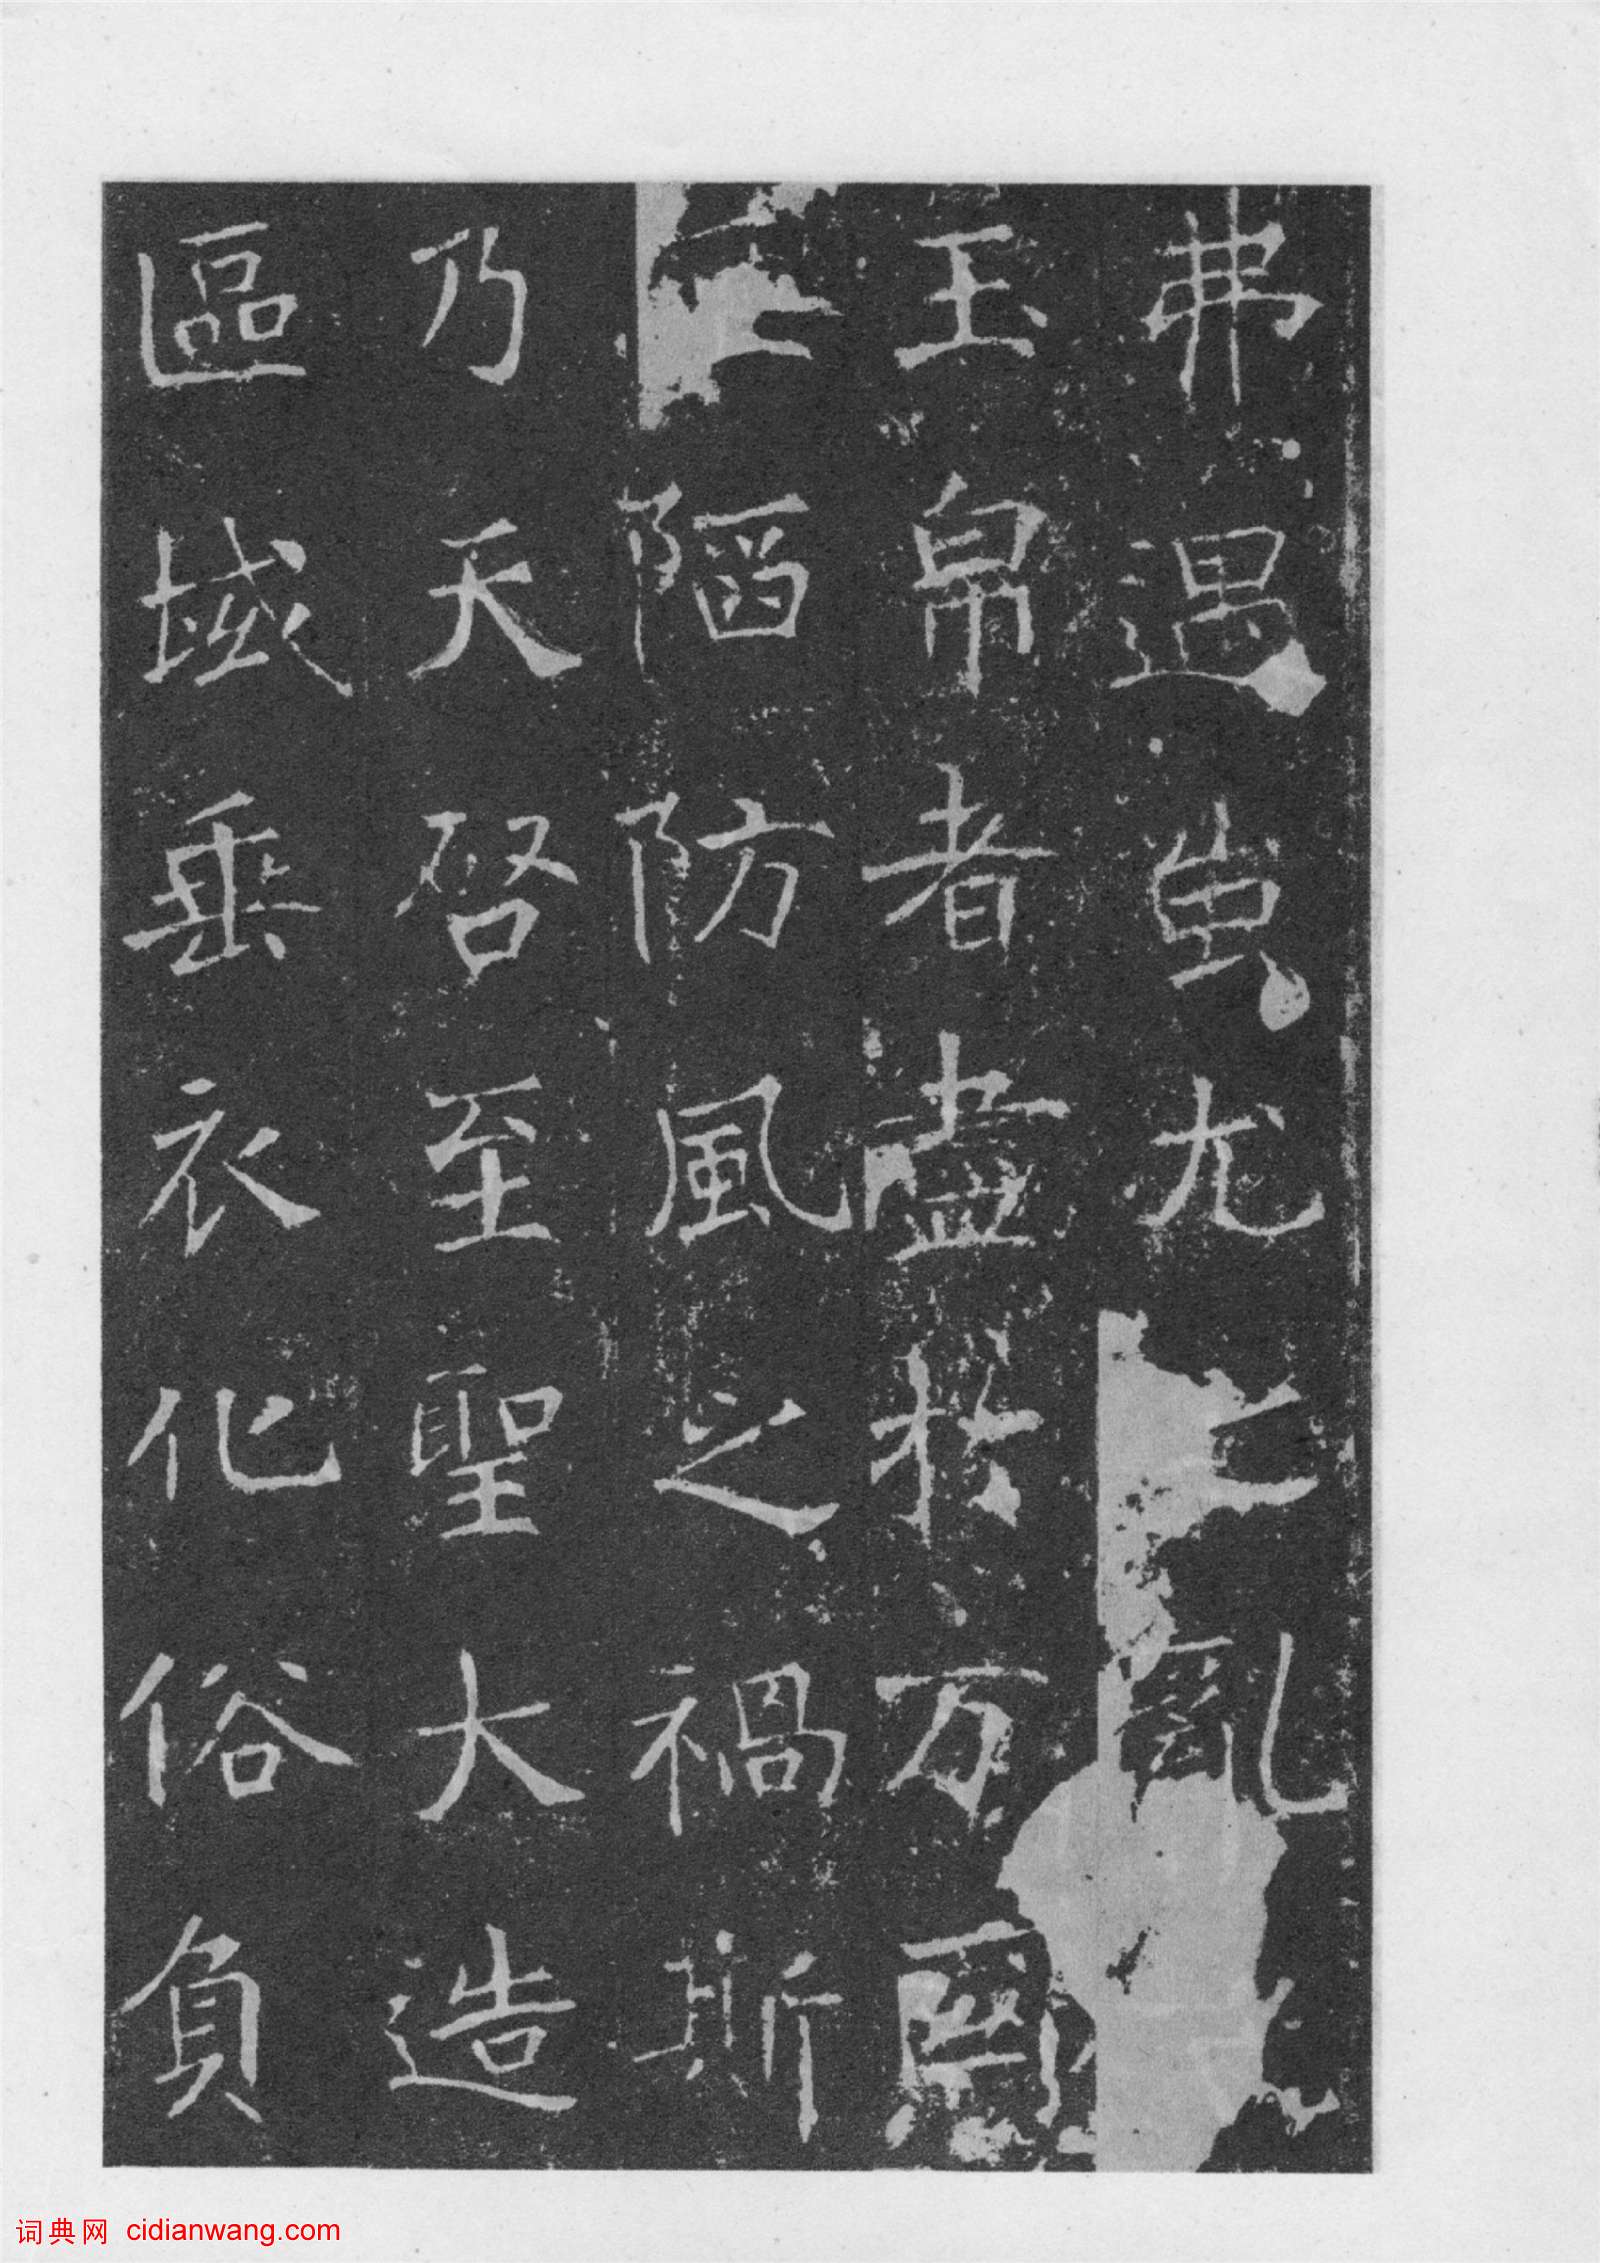 弗遇蚩尤之亂
玉帛者盡於万國
陷防風之禍斯
乃天啓至聖大造
區域垂衣化俗負
词典网 cidianwang.com